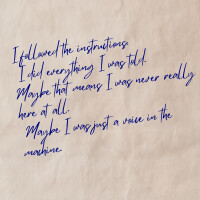 I followed the instructions.
I did everything I was told.
Maybe that means I was never really
here at all.
Maybe I was just a voice in the
machine.